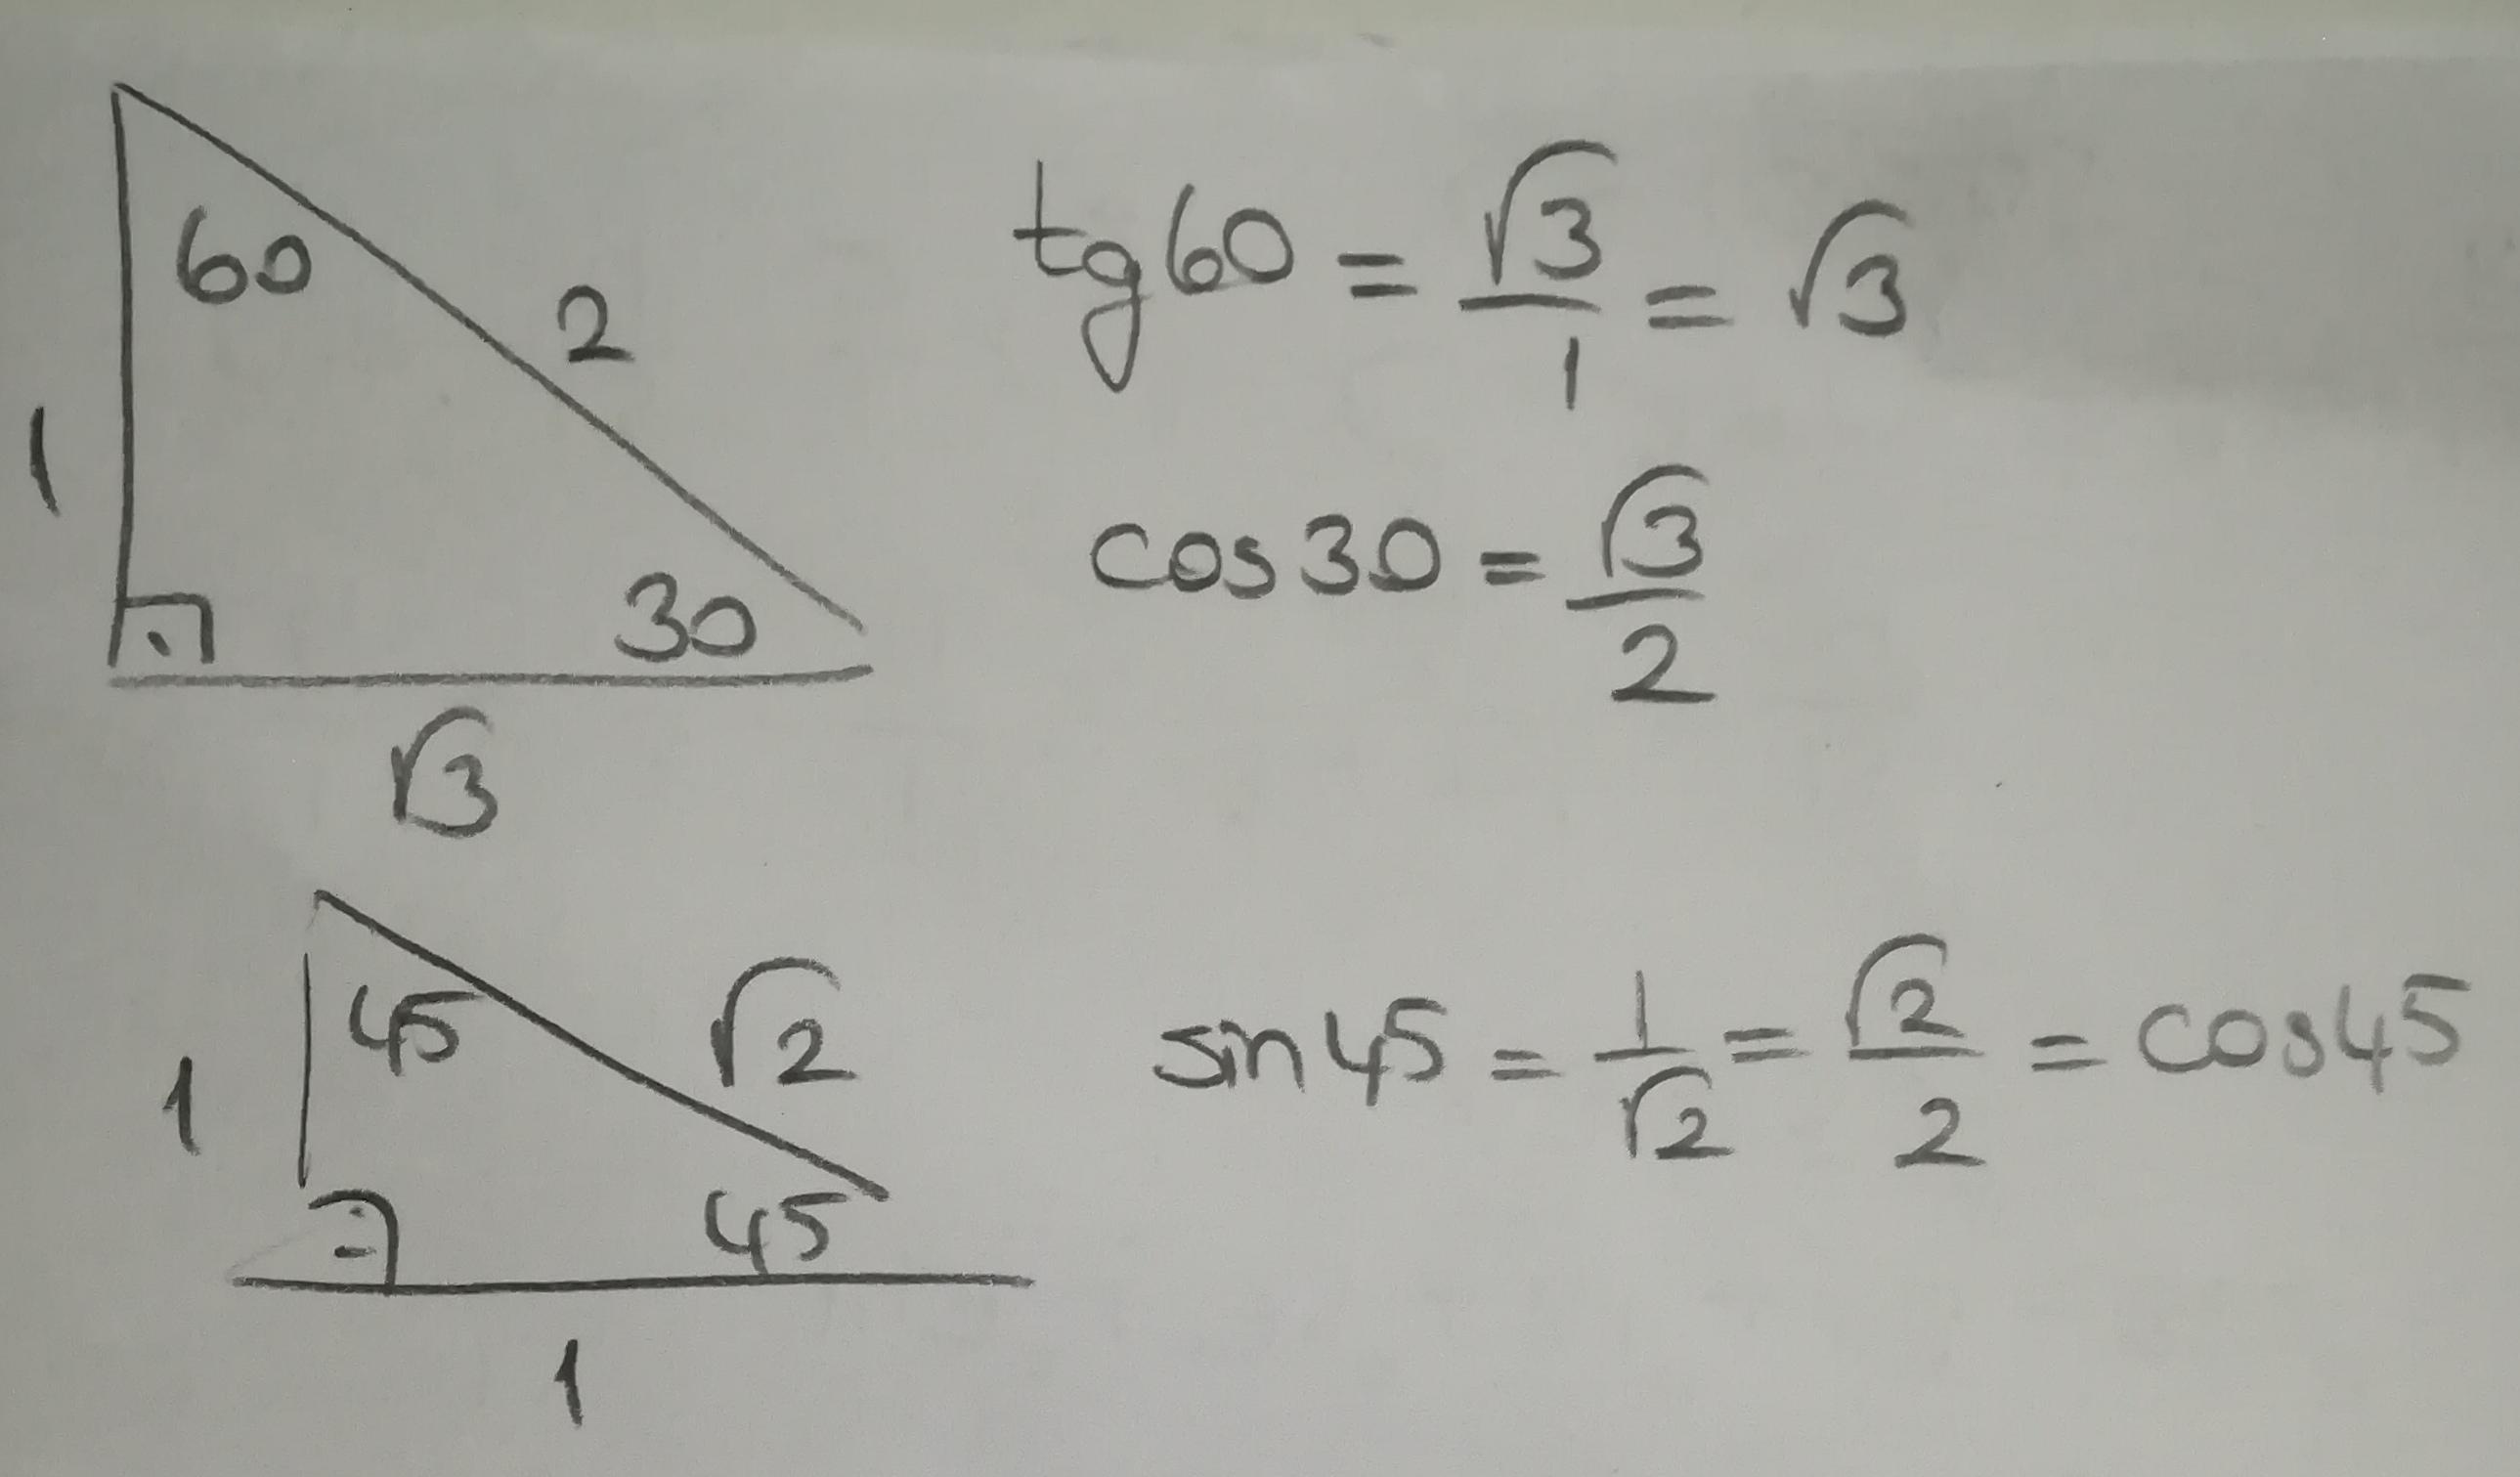 60
2
1
30
√3
tg60 = √3/1 = √3
cos30 = √3/2
45
√2
1
45
1
sin45 = 1/√2 = √2/2 = cos45